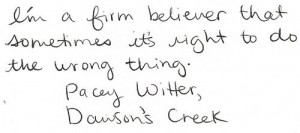 I'm a firm believer that
sometimes it's right to do
the wrong thing.
Pacey Witter,
Dawson's Creek